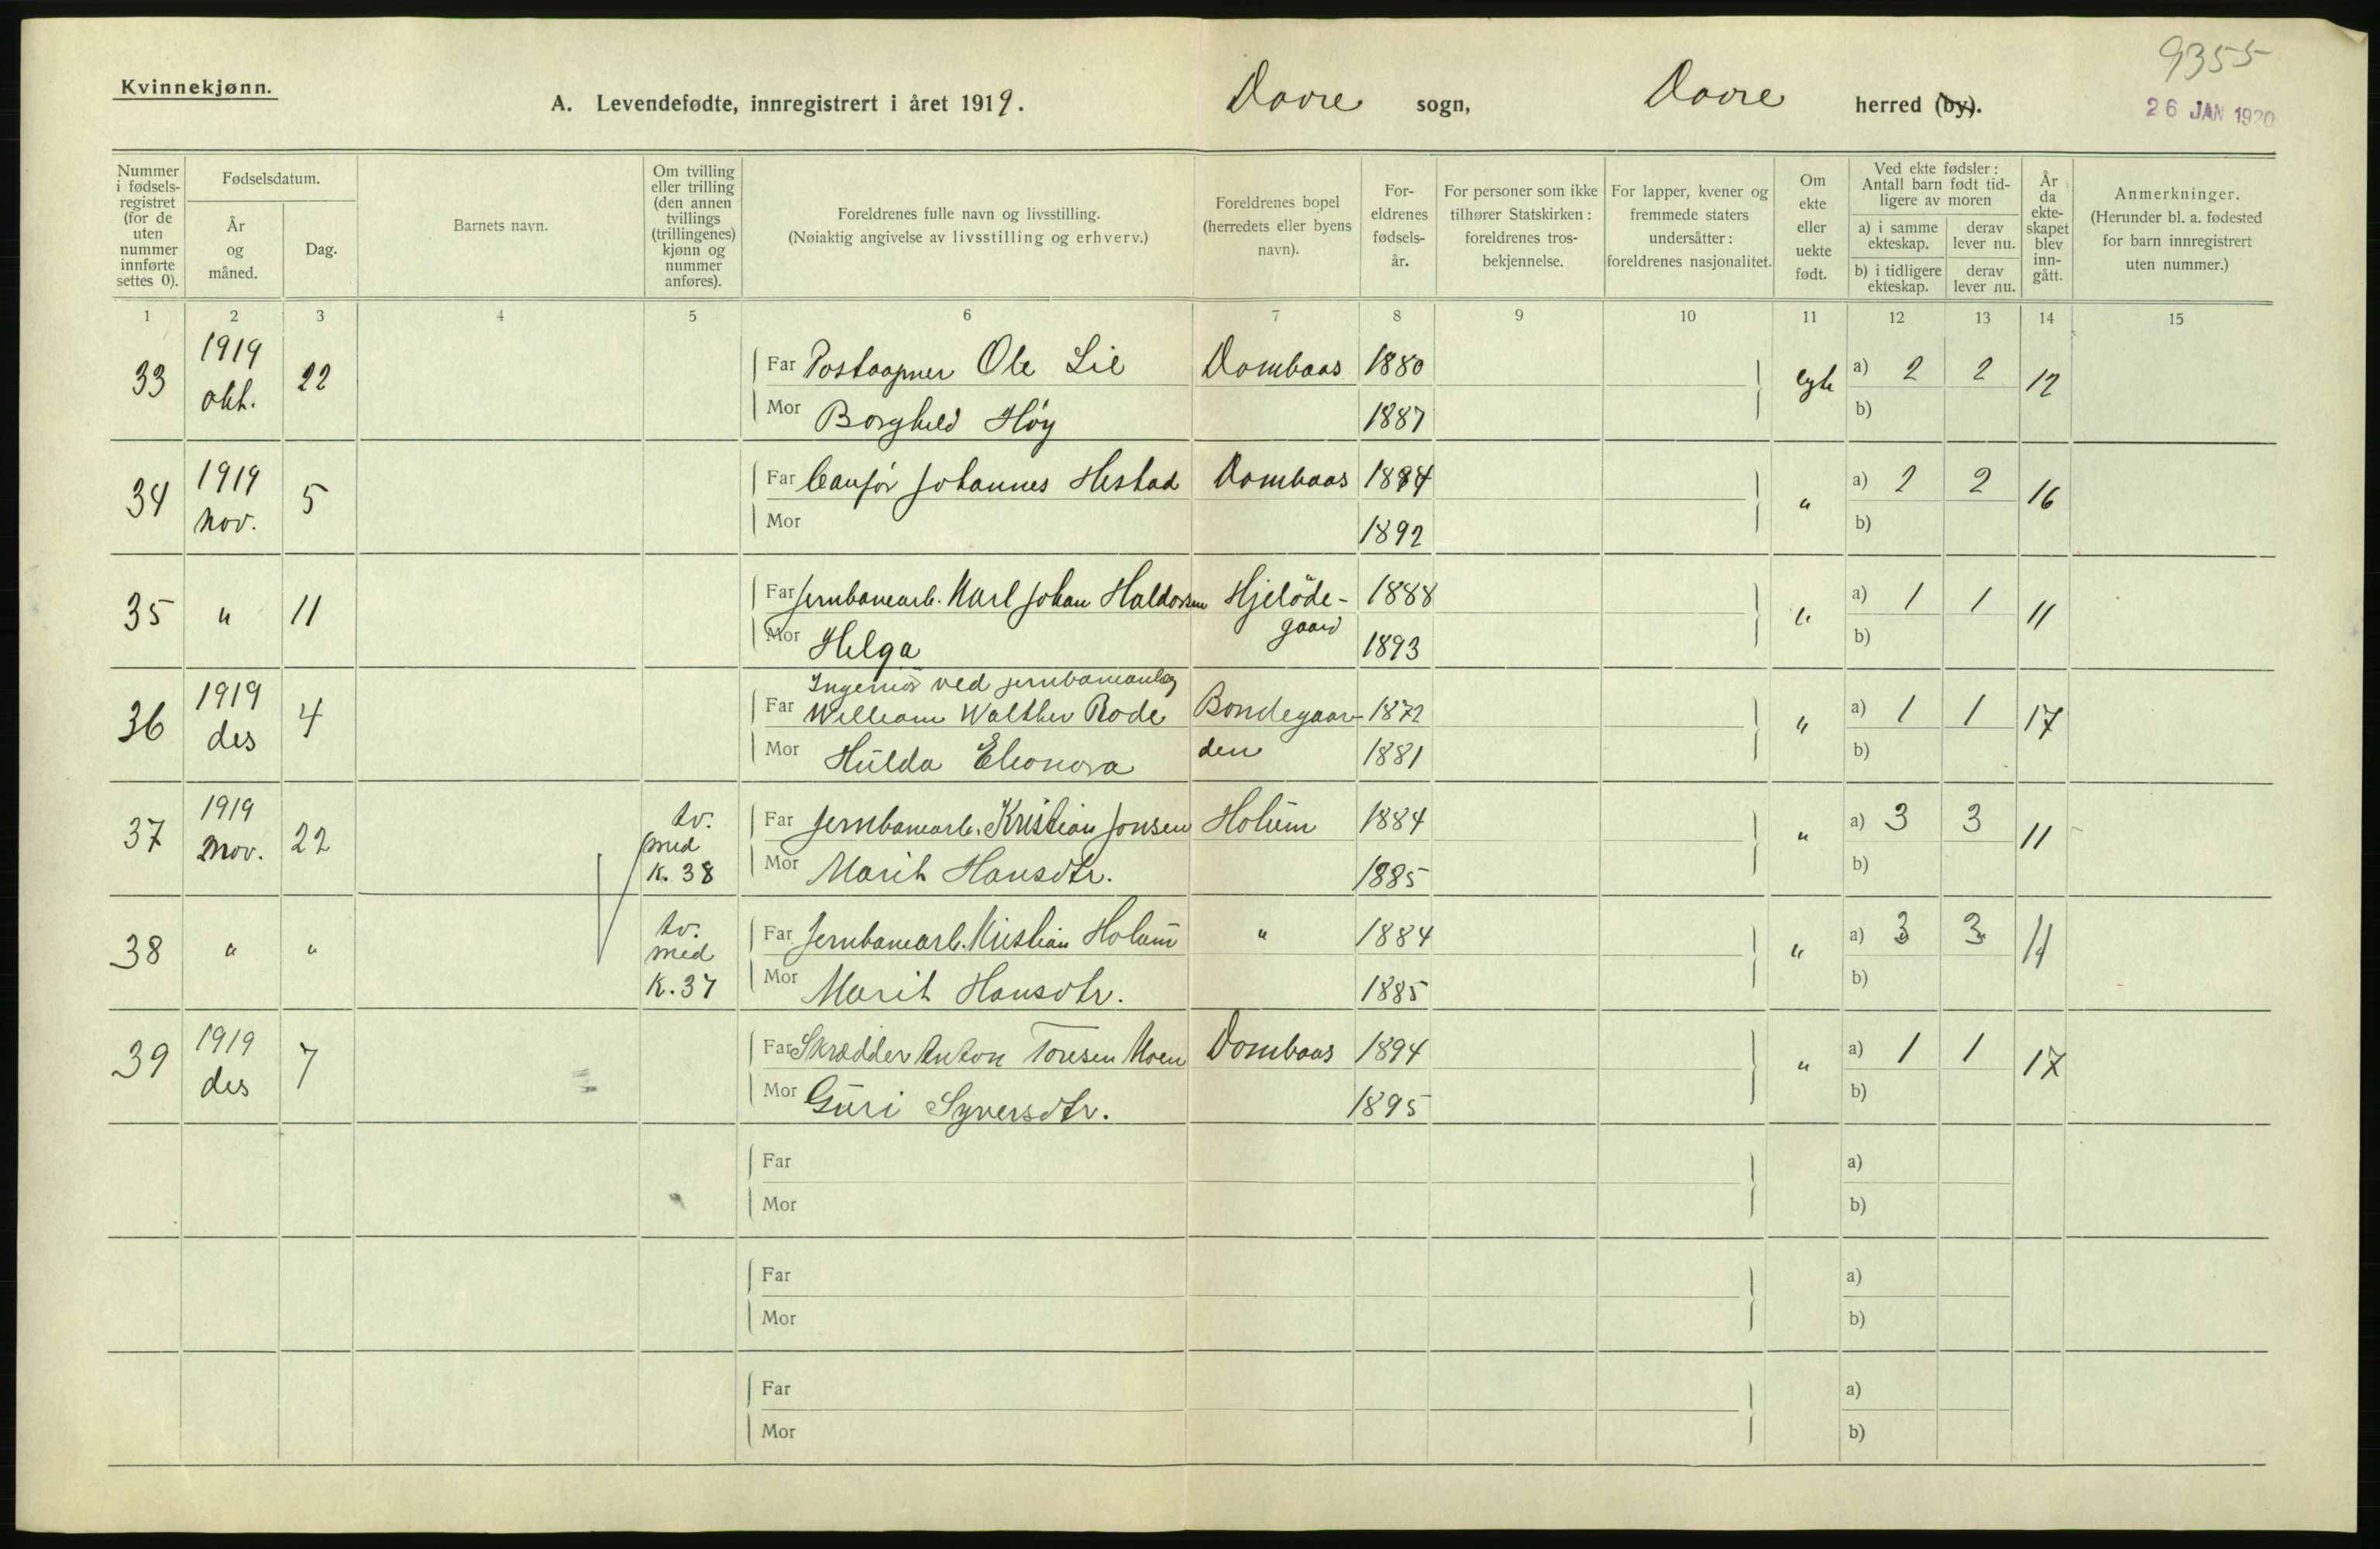 9355
Kvinnekjønn.
A. Levendefødte, innregistrert i året 1919. Dovre sogn, Dovre herred (by).
26 JAN 1920
Nummer i fødsels- registret (for de uten nummer innførte settes 0).
Fødselsdatum.
År og måned.
Dag.
Barnets navn.
Om tvilling eller trilling (den annen tvillings (trillingenes) kjønn og nummer anføres).
Foreldrenes fulle navn og livsstilling.
(Nøiaktig angivelse av livsstilling og erhverv.)
Foreldrenes bopel (herredets eller byens navn).
For- eldrenes fødsels- år.
For personer som ikke tilhører Statskirken: foreldrenes tros- bekjennelse.
For lapper, kvener og fremmede staters undersåtter: foreldrenes nasjonalitet.
Om ekte eller uekte født.
Ved ekte fødsler: Antall barn født tid- ligere av moren
a) i samme ekteskap.
derav lever nu.
b) i tidligere ekteskap.
derav lever nu.
År da ekte- skapet blev inn- gått.
Anmerkninger.
(Herunder bl. a. fødested for barn innregistrert uten nummer.)
1 2 3 4 5 6 7 8 9 10 11 12 13 14 15
33 1919 okt. 22 Far Postaapner Ole Lie Dombaas 1880 egte a) 2 2 12
Mor Borghild Høy 1887 b)
34 1919 nov. 5 Far Johannes Hestad Dombaas 1884 " a) 2 2 16
Mor 1892 b)
35 " 11 Far Jernbanearb. Karl Johan Haldorsen Hjelöde- gaard 1888 " a) 1 1 11
Mor Helga 1893 b)
Ingeniør ved jernbaneanlæg
36 1919 des 4 Far William Walther Rode Bondegaar- den 1872 " a) 1 1 17
Mor Hulda Eleonora 1881 b)
37 1919 Nov. 22 tv. med K. 38 Far Jernbanearb. Kristian Jonsen Holum 1884 " a) 3 3 11
Mor Marit Hansdtr. 1885 b)
38 " " tv. med K. 37 Far Jernbanearb. Kristian Holum " 1884 " a) 3 3 11
Mor Marit Hansdtr. 1885 b)
39 1919 des 7 Far Skrædder Anton Toresen Moen Dombaas 1894 " a) 1 1 17
Mor Guri Syversdtr. 1895 b)
Far a)
Mor b)
Far a)
Mor b)
Far a)
Mor b)